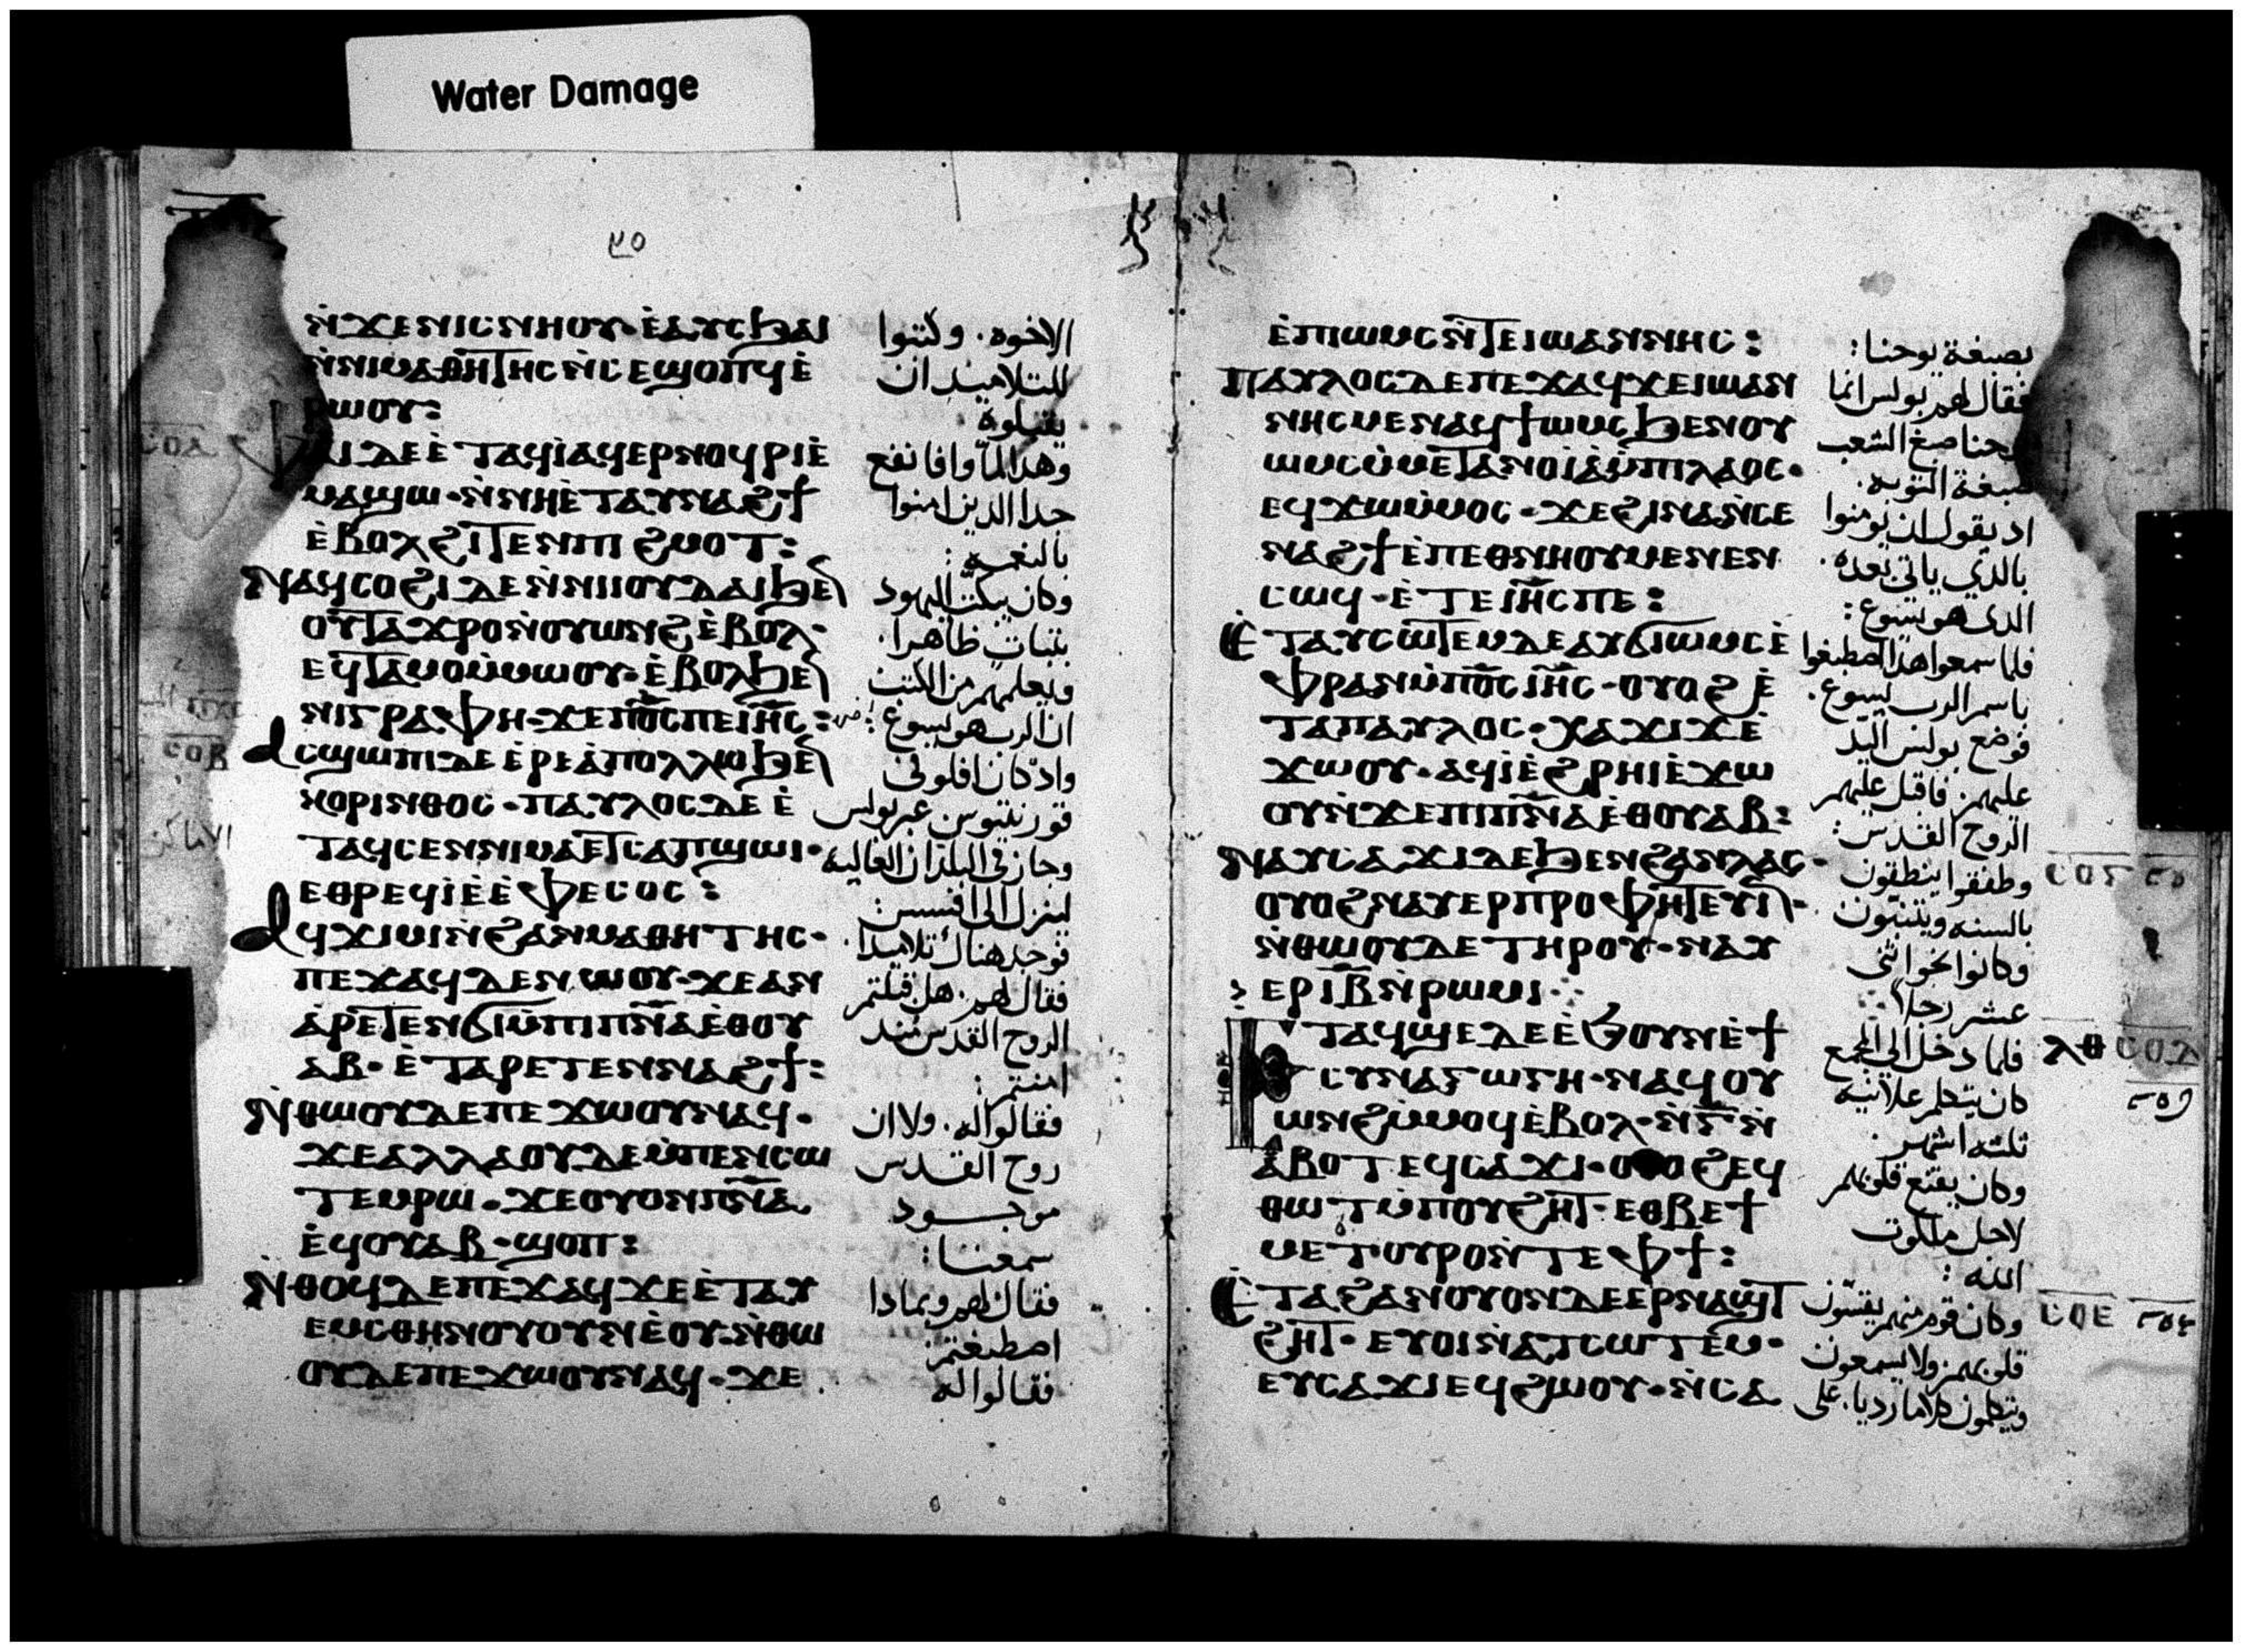 Water Damage
ⲛ̀ϫⲉⲛⲓⲥⲛⲏⲟⲩ·ⲉ̀ⲁⲩⲥϧⲁⲓ
ⲛ̀ⲛⲓⲙⲁⲑⲏⲧⲏⲥ ⲛ̀ⲥⲉϣⲟⲡϥ ⲉ̀
ⲣⲱⲟⲩ:
ⲇⲉ ⲉ̀ⲧⲁϥⲓ̀ ⲁϥⲉⲣⲛⲟϥⲣⲓ ⲉ̀
ⲙⲁϣⲱ·ⲛ̀ⲛⲏ ⲉ̀ⲧⲁⲩⲛⲁϩϯ
ⲉ̀ⲃⲟⲗϩⲓⲧⲉⲛⲡⲓϩⲙⲟⲧ:
ⲛⲁϥⲥⲟϩⲓ ⲇⲉ ⲛ̀ⲛⲓⲓⲟⲩⲇⲁⲓ ϧⲉⲛ
ⲟⲩⲧⲁϫⲣⲟ ⲛ̀ⲟⲩⲱⲛϩ ⲉ̀ⲃⲟⲗ·
ⲉϥⲧⲁⲙⲟ ⲙ̀ⲙⲱⲟⲩ·ⲉ̀ⲃⲟⲗϧⲉⲛ
ⲛⲓⲅⲣⲁⲫⲏ·ϫⲉ ⲡ︦ⲟ︦ⲥ︦ ⲡⲉ ⲓ︦ⲏ︦ⲥ︦:
ⲁⲥϣⲱⲡⲓ ⲇⲉ ⲉ̀ⲣⲉ ⲁ̀ⲡⲟⲗⲗⲱ ϧⲉⲛ
ⲕⲟⲣⲓⲛⲑⲟⲥ·ⲡⲁⲩⲗⲟⲥ ⲇⲉ ⲉ̀
ⲧⲁϥⲥⲉⲛ ⲛⲓⲙⲁ ⲉⲧⲥⲁⲡϣⲱⲓ·
ⲉⲑⲣⲉϥⲓ̀ ⲉ̀ ⲉ̀ⲫⲉⲥⲟⲥ:
ⲁϥϫⲓⲙⲓ ⲛ̀ϩⲁⲛⲙⲁⲑⲏⲧⲏⲥ·
ⲡⲉϫⲁϥ ⲇⲉ ⲛⲱⲟⲩ·ϫⲉ ⲁⲛ
ⲁ̀ⲣⲉⲧⲉⲛϭⲓ ⲙ̀ⲡⲓⲡ︦ⲛ︦ⲁ︦ ⲉ̀ⲑⲟⲩ
ⲁⲃ·ⲉ̀ⲧⲁⲣⲉⲧⲉⲛⲛⲁϩϯ:
ⲛ̀ⲑⲱⲟⲩ ⲇⲉ ⲡⲉϫⲱⲟⲩ ⲛⲁϥ·
ϫⲉ ⲁⲗⲗⲁ ⲟⲩⲇⲉ ⲙ̀ⲡⲉⲛⲥⲱ
ⲧⲉⲙ ⲣⲱ·ϫⲉ ⲟⲩⲟⲛ ⲡ︦ⲛ︦ⲁ︦
ⲉ̀ϥⲟⲩⲁⲃ·ϣⲟⲡ:
ⲛ̀ⲑⲟϥ ⲇⲉ ⲡⲉϫⲁϥ ϫⲉ ⲉ̀ⲧⲁⲩ
ⲉⲙⲥⲑⲏⲛⲟⲩ ⲟⲩⲛ ⲉ̀ⲟⲩ·ⲛ̀ⲑⲱ
ⲟⲩ ⲇⲉ ⲡⲉϫⲱⲟⲩ ⲛⲁϥ·ϫⲉ
الاخوه. وكتبوا
للتلاميذ ان
يقبلوه
وهدا لما وافا نفع
جدا الدين امنوا
بالنعمه:
وكان يبكت اليهود
بثبات ظاهرا.
ويعلمهم من الكتب
ان الرب هو يسوع:
واد كان افلو في
قورنتيوس عبر بولس
وجاز في البلدان العاليه
لينزل الى افسس:
فوجد هناك تلاميدا.
فقال لهم. هل قبلتم
الروح القدس مند
امنتم:
فقالوا له. ولا ان
روح القدس
موجود
سمعنا:
فقال لهم وبمادا
اصطبغتم
فقالوا له
ⲉ̀ⲡⲓⲱⲙⲥ ⲛ̀ⲧⲉ ⲓⲱⲁⲛⲛⲏⲥ:
ⲡⲁⲩⲗⲟⲥ ⲇⲉ ⲡⲉϫⲁϥ ϫⲉ ⲓⲱⲁⲛ
ⲛⲏⲥ ⲙⲉⲛ ⲁϥϯⲱⲙⲥ ϧⲉⲛ ⲟⲩ
ⲱⲙⲥ ⲙ̀ⲙⲉⲧⲁⲛⲟⲓⲁ̀ ⲙ̀ⲡⲓⲗⲁⲟⲥ·
ⲉϥϫⲱ ⲙ̀ⲙⲟⲥ·ϫⲉ ϩⲓⲛⲁ ⲛ̀ⲥⲉ
ⲛⲁϩϯ ⲉ̀ⲡⲉⲑⲛⲏⲟⲩ ⲙⲉⲛⲉⲛ
ⲥⲱϥ·ⲉ̀ⲧⲉ ⲓ︦ⲏ︦ⲥ︦ ⲡⲉ:
ⲉ̀ⲧⲁⲩⲥⲱⲧⲉⲙ ⲇⲉ ⲁⲩϭⲓⲱⲙⲥ ⲉ̀
ⲫⲣⲁⲛ ⲙ̀ⲡ︦ⲟ︦ⲥ︦ ⲓ︦ⲏ︦ⲥ︦·ⲟⲩⲟϩ ⲉ̀
ⲧⲁ ⲡⲁⲩⲗⲟⲥ·ⲭⲁ ϫⲓϫ ⲉ̀
ϫⲱⲟⲩ·ⲁϥⲓ̀ ⲉ̀ϩⲣⲏⲓ ⲉ̀ϫⲱ
ⲟⲩ ⲛ̀ϫⲉ ⲡⲓⲡ︦ⲛ︦ⲁ︦ ⲉ̀ⲑⲟⲩⲁⲃ:
ⲛⲁⲩⲥⲁϫⲓ ⲇⲉ ϧⲉⲛ ϩⲁⲛⲗⲁⲥ·
ⲟⲩⲟϩ ⲛⲁⲩⲉⲣⲡⲣⲟⲫⲏⲧⲉⲩⲓⲛ·
ⲛ̀ⲑⲱⲟⲩ ⲇⲉ ⲧⲏⲣⲟⲩ·ⲛⲁⲩ
ⲉⲣ ⲓ︦ⲃ︦ ⲛ̀ⲣⲱⲙⲓ·
ⲉⲧⲁϥϣⲉ ⲇⲉ ⲉ̀ϧⲟⲩⲛ ⲉ̀ϯ
ⲥⲩⲛⲁⲅⲱⲅⲏ·ⲛⲁϥⲟⲩ
ⲱⲛϩ ⲙ̀ⲙⲟϥ ⲉ̀ⲃⲟⲗ·ⲛ̀ⲅ̅ ⲛ̀
ⲁ̀ⲃⲟⲧ ⲉϥⲥⲁϫⲓ·ⲟⲩⲟϩ ⲉϥ
ⲑⲱⲧ ⲙ̀ⲡⲟⲩϩⲏⲧ·ⲉⲑⲃⲉ ϯ
ⲙⲉⲧⲟⲩⲣⲟ ⲛ̀ⲧⲉ ⲫϯ:
ⲉ̀ⲧⲁ ϩⲁⲛⲟⲩⲟⲛ ⲇⲉ ⲉⲣⲛⲁϣⲧ
ϩⲏⲧ·ⲉⲩⲟⲓ ⲛ̀ⲁⲧⲥⲱⲧⲉⲙ·
ⲉⲩⲥⲁϫⲓ ⲉϥϩⲱⲟⲩ·ⲛ̀ⲥⲁ
بصبغة يوحنا:
فقال لهم بولس انما
يوحنا صبغ الشعب
صبغة التوبه.
اد يقول ان يومنوا
بالدي ياتي بعده.
الدي هو يسوع:
فلما سمعوا هدا اصطبغوا
باسم الرب يسوع.
فوضع بولس اليد
عليهم. فاقبل عليهم
الروح القدس:
وطفقوا ينطقون
بالسنه ويتنبون
وكانوا نحو اثني
عشر رجلا
فلما دخل الى المجمع
كان يتكلم علانية
ثلثه اشهر.
وكان يقنع قلوبهم
لاجل ملكوت
الله:
وكان قوم منهم يقسون
قلوبهم. ولا يسمعون
ويتكلمون كلاما رديا. على
ⲗⲑ